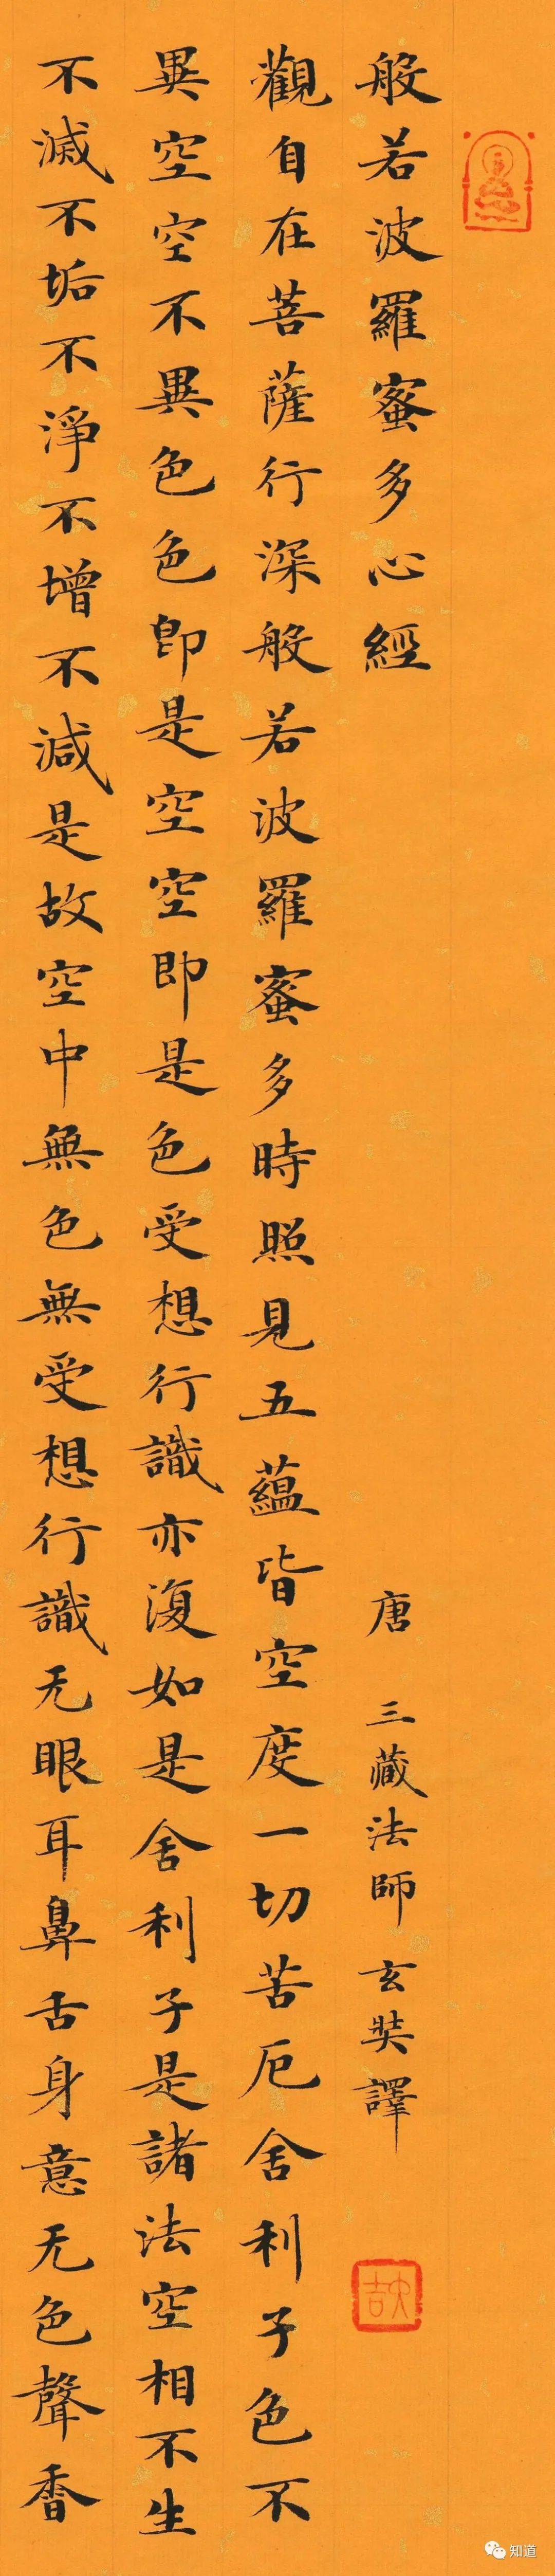 般若波羅蜜多心經 唐 三藏法師玄奘譯
觀自在菩薩行深般若波羅蜜多時照見五蘊皆空度一切苦厄舍利子色不
異空空不異色色即是空空即是色受想行識亦復如是舍利子是諸法空相不生
不滅不垢不淨不增不減是故空中無色無受想行識无眼耳鼻舌身意无色聲香
知道